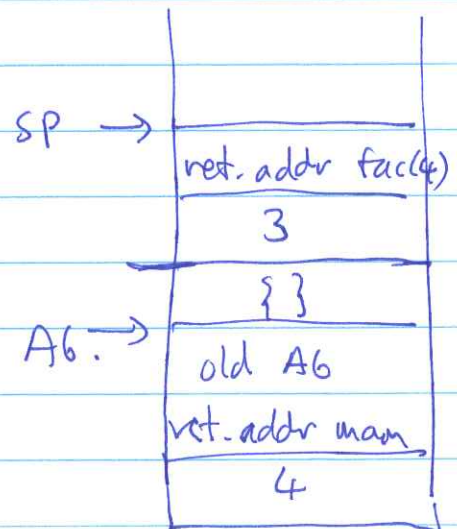 SP →
ret. addr fac(4)
3
{ }
A6. →
old A6
ret. addr main
4